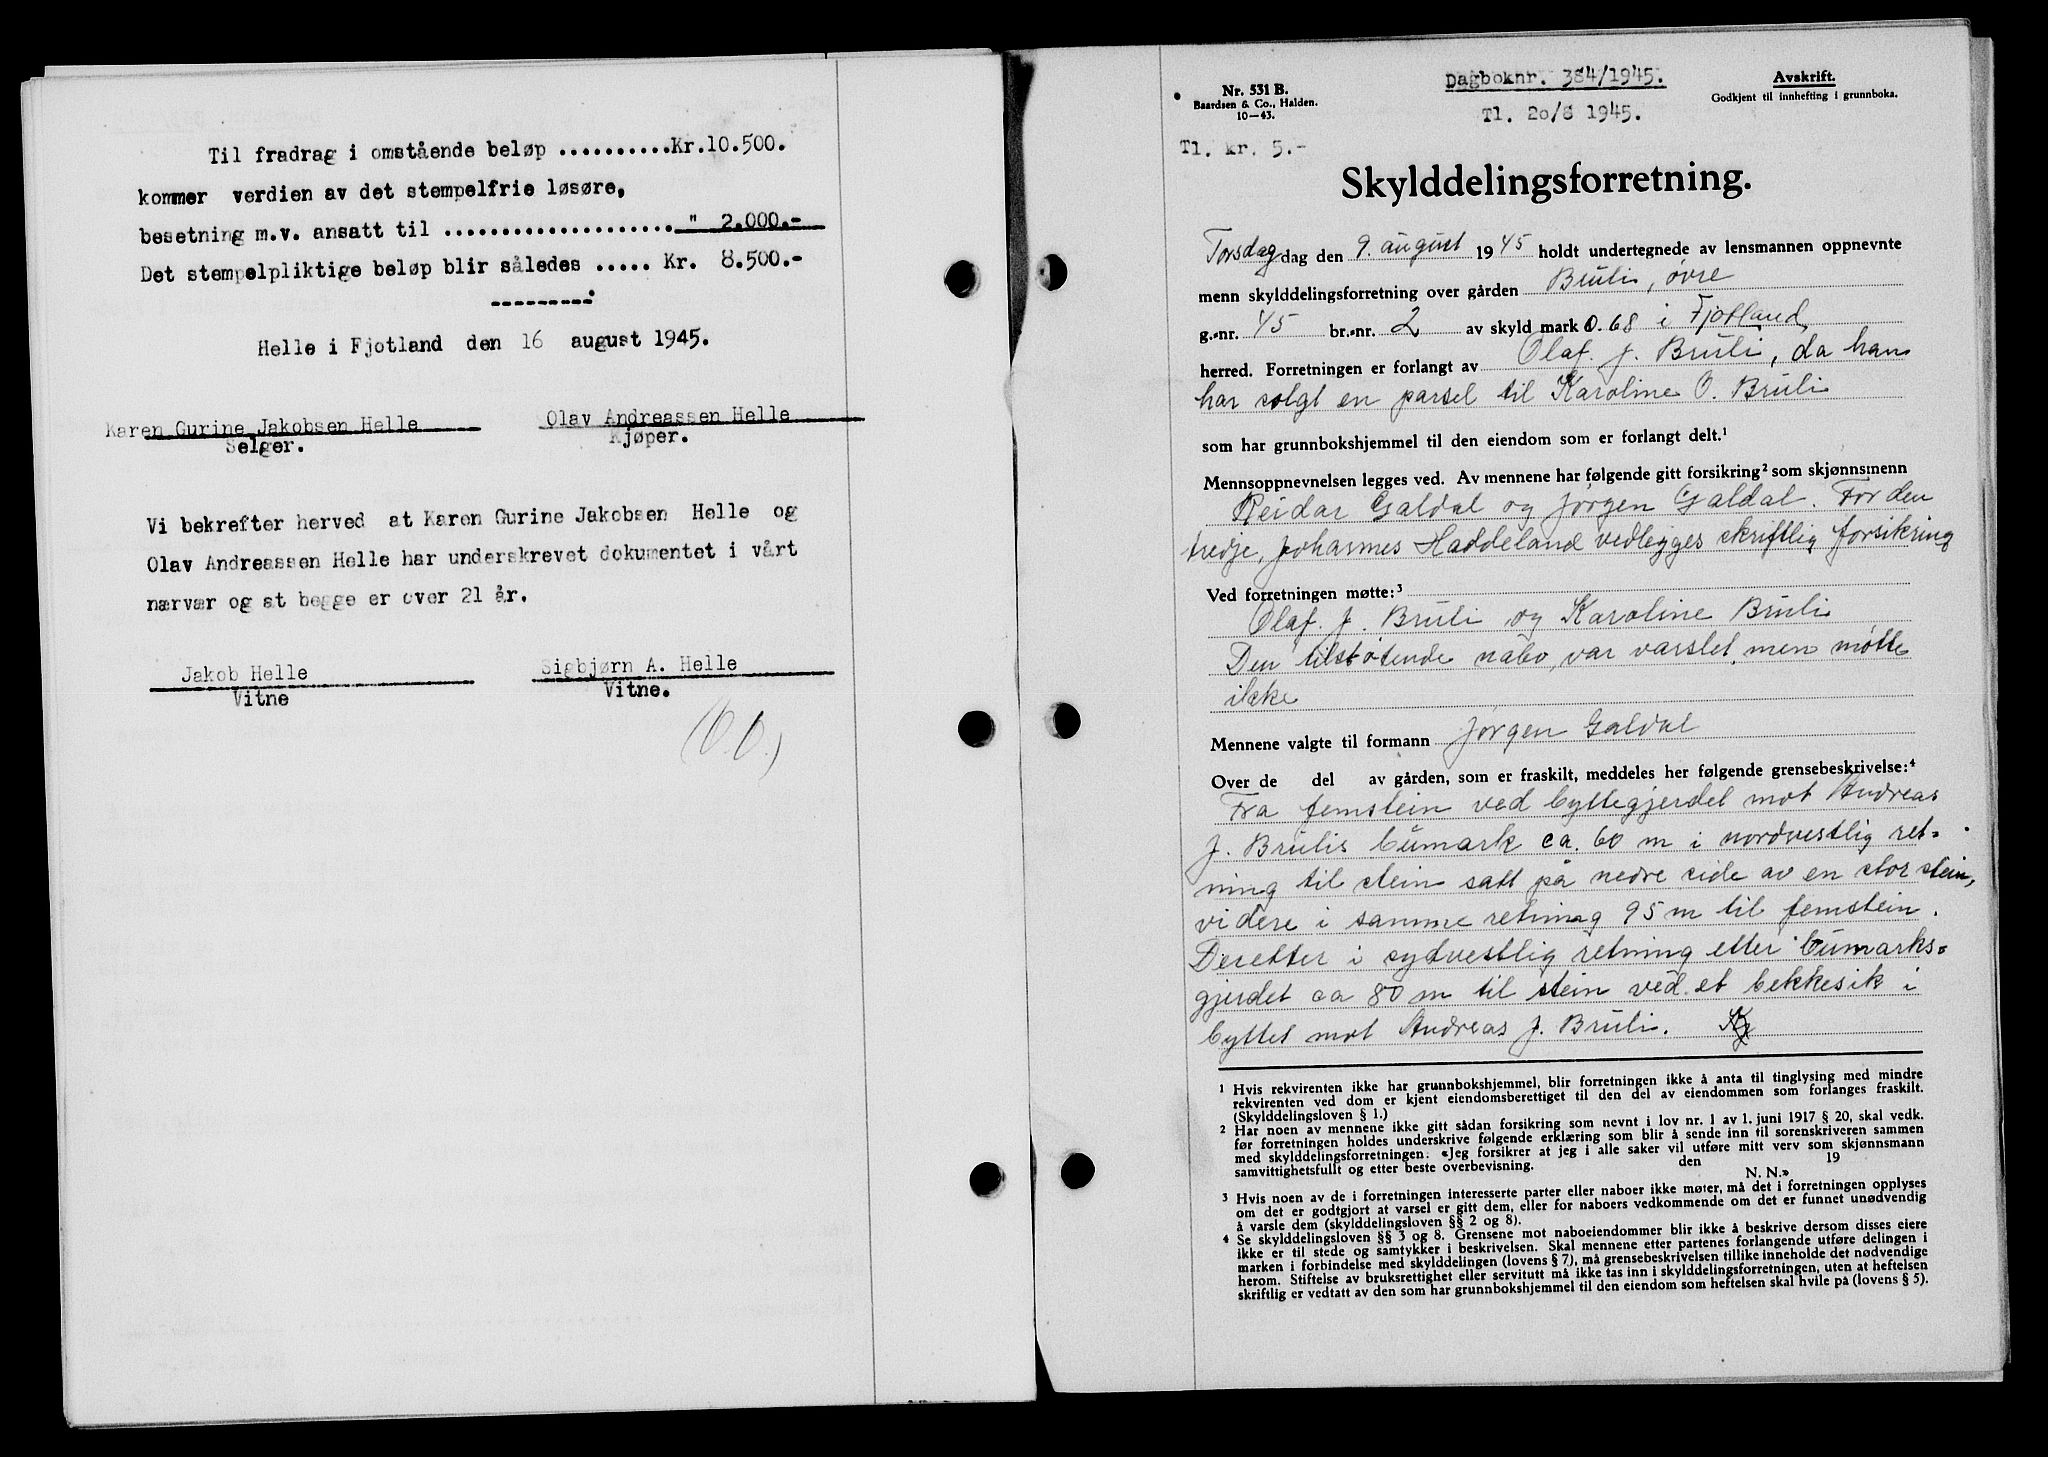 Til fradrag i omstående beløp ..........Kr.10.500.
kommer verdien av det stempelfrie løsøre,
besetning m.v. ansatt til ..................... " 2.000.-
Det stempelpliktige beløp blir således ..... Kr. 8.500.-
----------
Helle i Fjotland den 16 august 1945.
Karen Gurine Jakobsen Helle Olav Andreassen Helle
Selger. Kjøper.
Vi bekrefter herved at Karen Gurine Jakobsen Helle og
Olav Andreassen Helle har underskrevet dokumentet i vårt
nærvær og at begge er over 21 år.
Jakob Helle Sigbjørn A. Helle
Vitne Vitne.
Nr. 531 B.
Baardsen & Co., Halden.
10—43.
Dagboknr. 384/1945.
Tl. 20/8 1945.
Avskrift.
Godkjent til innhefting i grunnboka.
Tl. kr. 5.-
Skylddelingsforretning.
Torsdag dag den 9. august 1945 holdt undertegnede av lensmannen oppnevnte
menn skylddelingsforretning over gården Bruli, øvre
g.-nr. 45 br.-nr. 2 av skyld mark 0.68 i Fjotland,
herred. Forretningen er forlangt av Olaf. J. Bruli, da han
har solgt en parsel til Karoline O. Bruli
som har grunnbokshjemmel til den eiendom som er forlangt delt.1
Mennsoppnevnelsen legges ved. Av mennene har følgende gitt forsikring2 som skjønnsmenn
Reidar Galdal og Jørgen Galdal. For den
tredje, Johannes Haddeland vedlegges skriftlig forsikring
Ved forretningen møtte:3
Olaf. J. Bruli og Karoline Bruli
Den tilstøtende nabo, var varslet, men møtte
ikke
Mennene valgte til formann Jørgen Galdal
Over de del av gården, som er fraskilt, meddeles her følgende grensebeskrivelse:4
Fra jemstein ved byttegjerdet mot Andreas
J. Brulis bumark ca. 60 m i nordvestlig ret-
ning til stein satt på nedre side av en stor stein,
videre i samme retning 95 m til jemstein.
Deretter i sydvestlig retning etter bumarks-
gjerdet ca 80 m til stein ved et bekkesik i
byttet mot Andreas J. Bruli.
1 Hvis rekvirenten ikke har grunnbokshjemmel, blir forretningen ikke å anta til tinglysing med mindre
rekvirenten ved dom er kjent eiendomsberettiget til den del av eiendommen som forlanges fraskilt.
(Skylddelingsloven § 1.)
2 Har noen av mennene ikke gitt sådan forsikring som nevnt i lov nr. 1 av 1. juni 1917 § 20, skal vedk.
før forretningen holdes underskrive følgende erklæring som blir å sende inn til sorenskriveren sammen
med skylddelingsforretningen: «Jeg forsikrer at jeg i alle saker vil utføre mitt verv som skjønnsmann
samvittighetsfullt og etter beste overbevisning. den 19
N. N.»
3 Hvis noen av de i forretningen interesserte parter eller naboer ikke møter, må det i forretningen opplyses
om det er godtgjort at varsel er gitt dem, eller for naboers vedkommende om det er funnet unødvendig
å varsle dem (skylddelingsloven §§ 2 og 8).
4 Se skylddelingsloven §§ 3 og 8. Grensene mot naboeiendommer blir ikke å beskrive dersom disses eiere
ikke er til stede og samtykker i beskrivelsen. Skal mennene etter partenes forlangende utføre delingen i
marken i forbindelse med skylddelingen (lovens § 7), må grensebeskrivelsen tillike inneholde det nødvendige
herom. Stiftelse av bruksrettighet eller servitutt må ikke tas inn i skylddelingsforretningen, uten at heftelsen
skriftlig er vedtatt av den som har grunnbokshjemmel til den eiendom som heftelsen skal hvile på (lovens § 5).